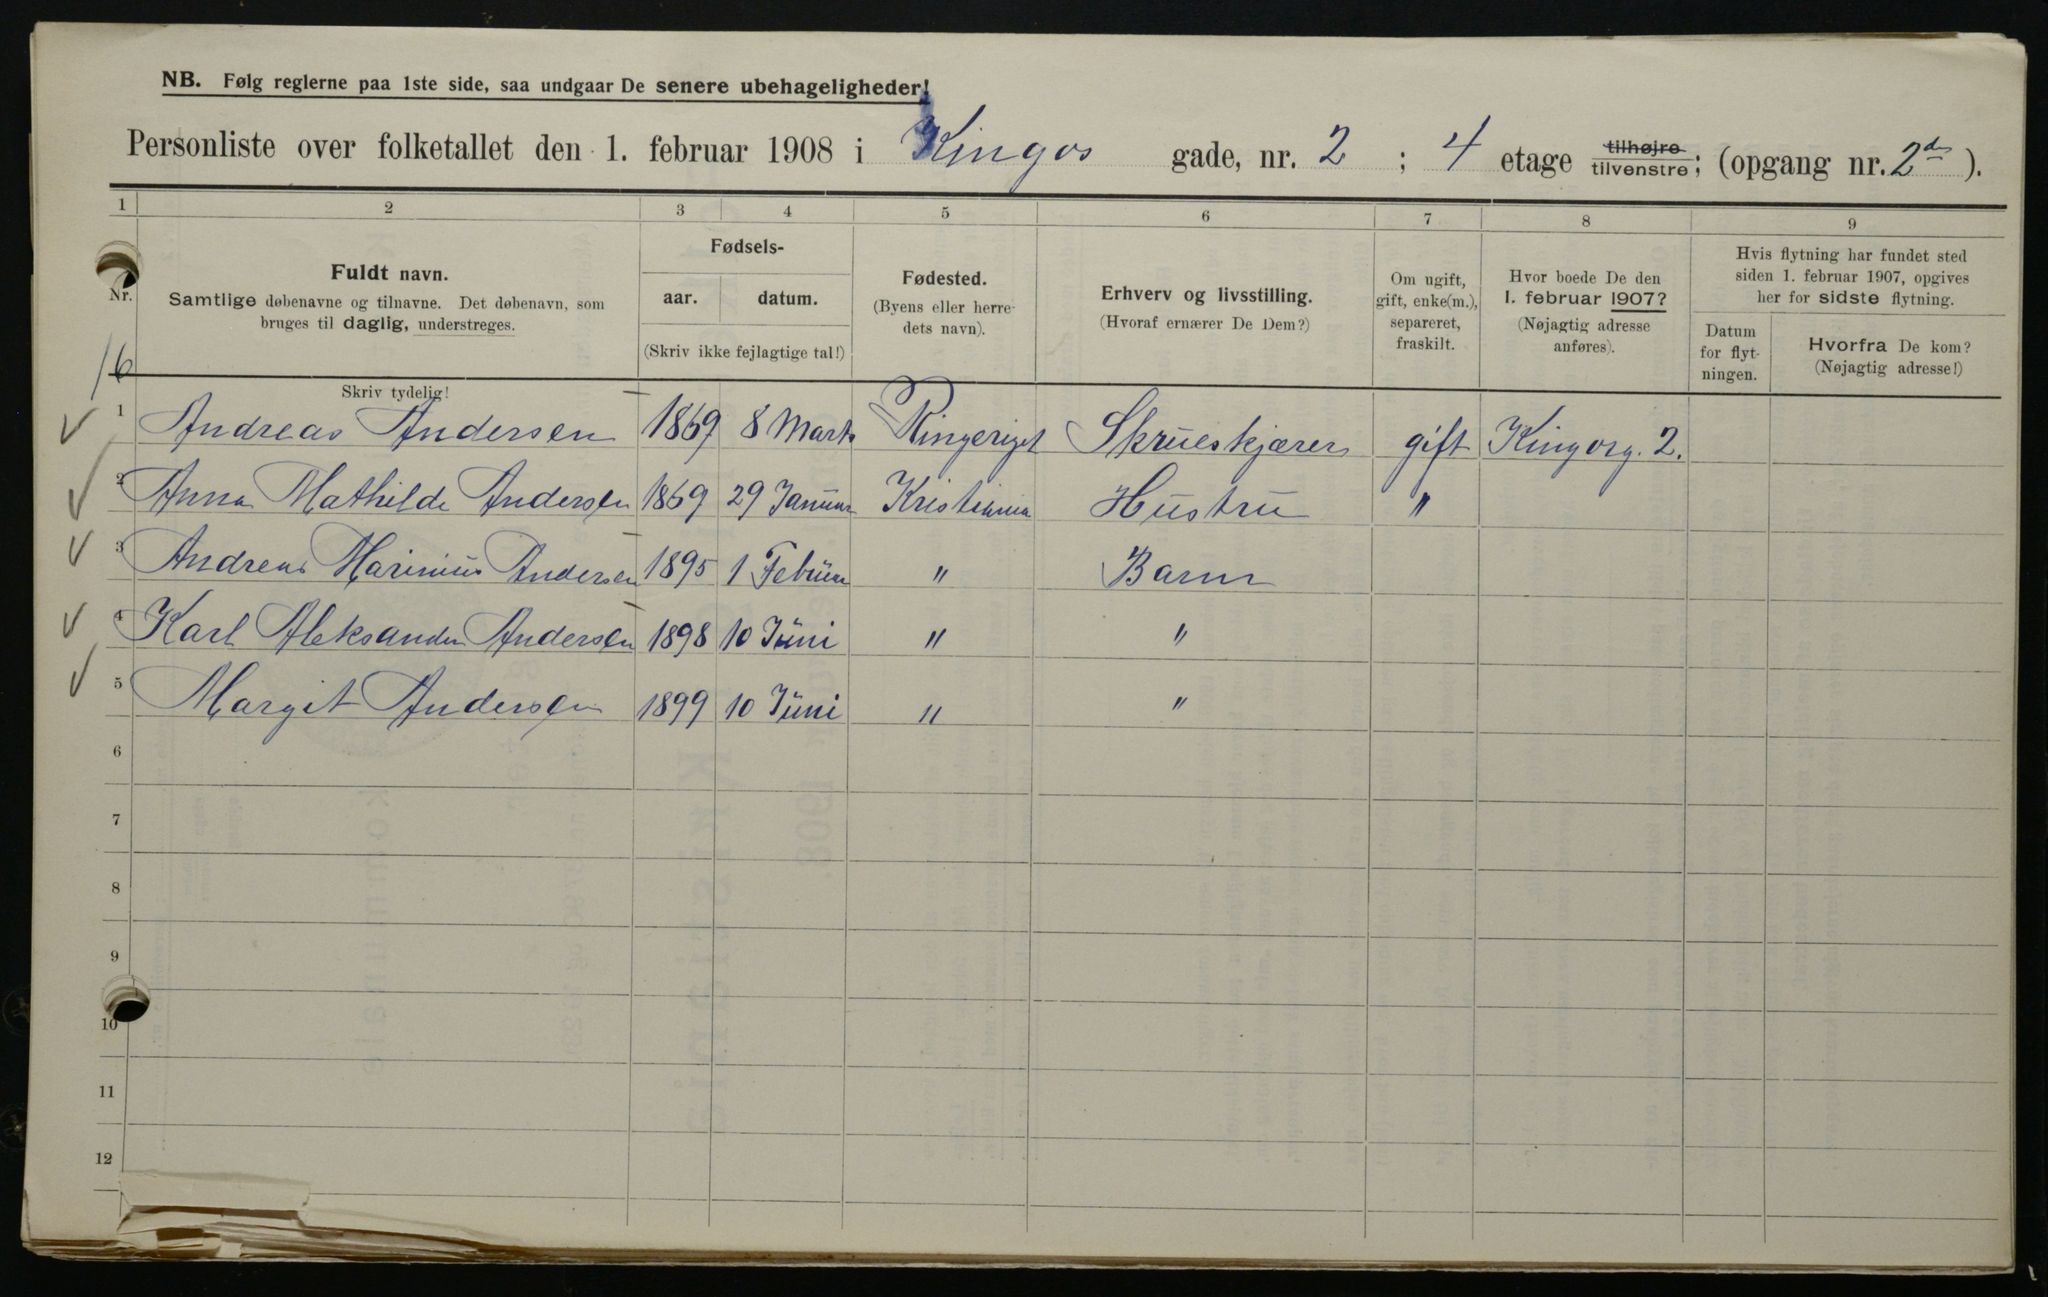 NB. Følg reglerne paa 1ste side, saa undgaar De senere ubehageligheder!
Personliste over folketallet den 1. februar 1908 i Kingos gade, nr. 2 ; 4 etage tilhøjre tilvenstre; (opgang nr. 2den ).
1 2 3 4 5 6 7 8 9
Nr.
Fuldt navn.
Samtlige døbenavne og tilnavne. Det døbenavn, som
bruges til daglig, understreges.
Skriv tydelig!
Fødsels-
aar. datum.
(Skriv ikke fejlagtige tal!)
Fødested.
(Byens eller herre-
dets navn).
Erhverv og livsstilling.
(Hvoraf ernærer De Dem?)
Om ugift,
gift, enke(m.),
separeret,
fraskilt.
Hvor boede De den
1. februar 1907?
(Nøjagtig adresse
anføres).
Hvis flytning har fundet sted
siden 1. februar 1907, opgives
her for sidste flytning.
Datum
for flyt-
ningen.
Hvorfra De kom?
(Nøjagtig adresse!)
16
1 Andreas Andersen 1869 8 Marts Ringeriget Skrueskjærer gift Kingosg. 2.
2 Anna Mathilde Andersen 1869 29 Januar Kristiania Hustru "
3 Andreas Marinius Andersen 1895 1 Februar " Barn
4 Karl Aleksander Andersen 1898 10 Juni " "
5 Margit Andersen 1899 10 Juni " "
6
7
8
9
10
11
12